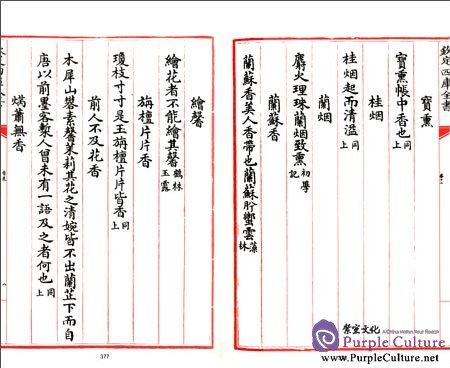 欽定四庫全書
寳熏
寳熏帳中香也同上
桂烟
桂烟起而清溢同上
蘭烟
麝火理珠蘭烟致熏初學記
蘭蘇香
蘭蘇香美人香帶也蘭蘇肸蠁雲藻林
繪馨
繪花者不能繪其馨鶴林玉露
旃檀片片香
瓊枝寸寸是玉旃檀片片皆香同上
前人不及花香
木犀山礬素馨茉莉其花之清婉皆不出蘭芷下而自
唐以前墨客槧人曽未有一語及之者何也同上
焫蕭無香
377
紫宸文化
A China Within Your Reach
PurpleCulture
www.PurpleCulture.net